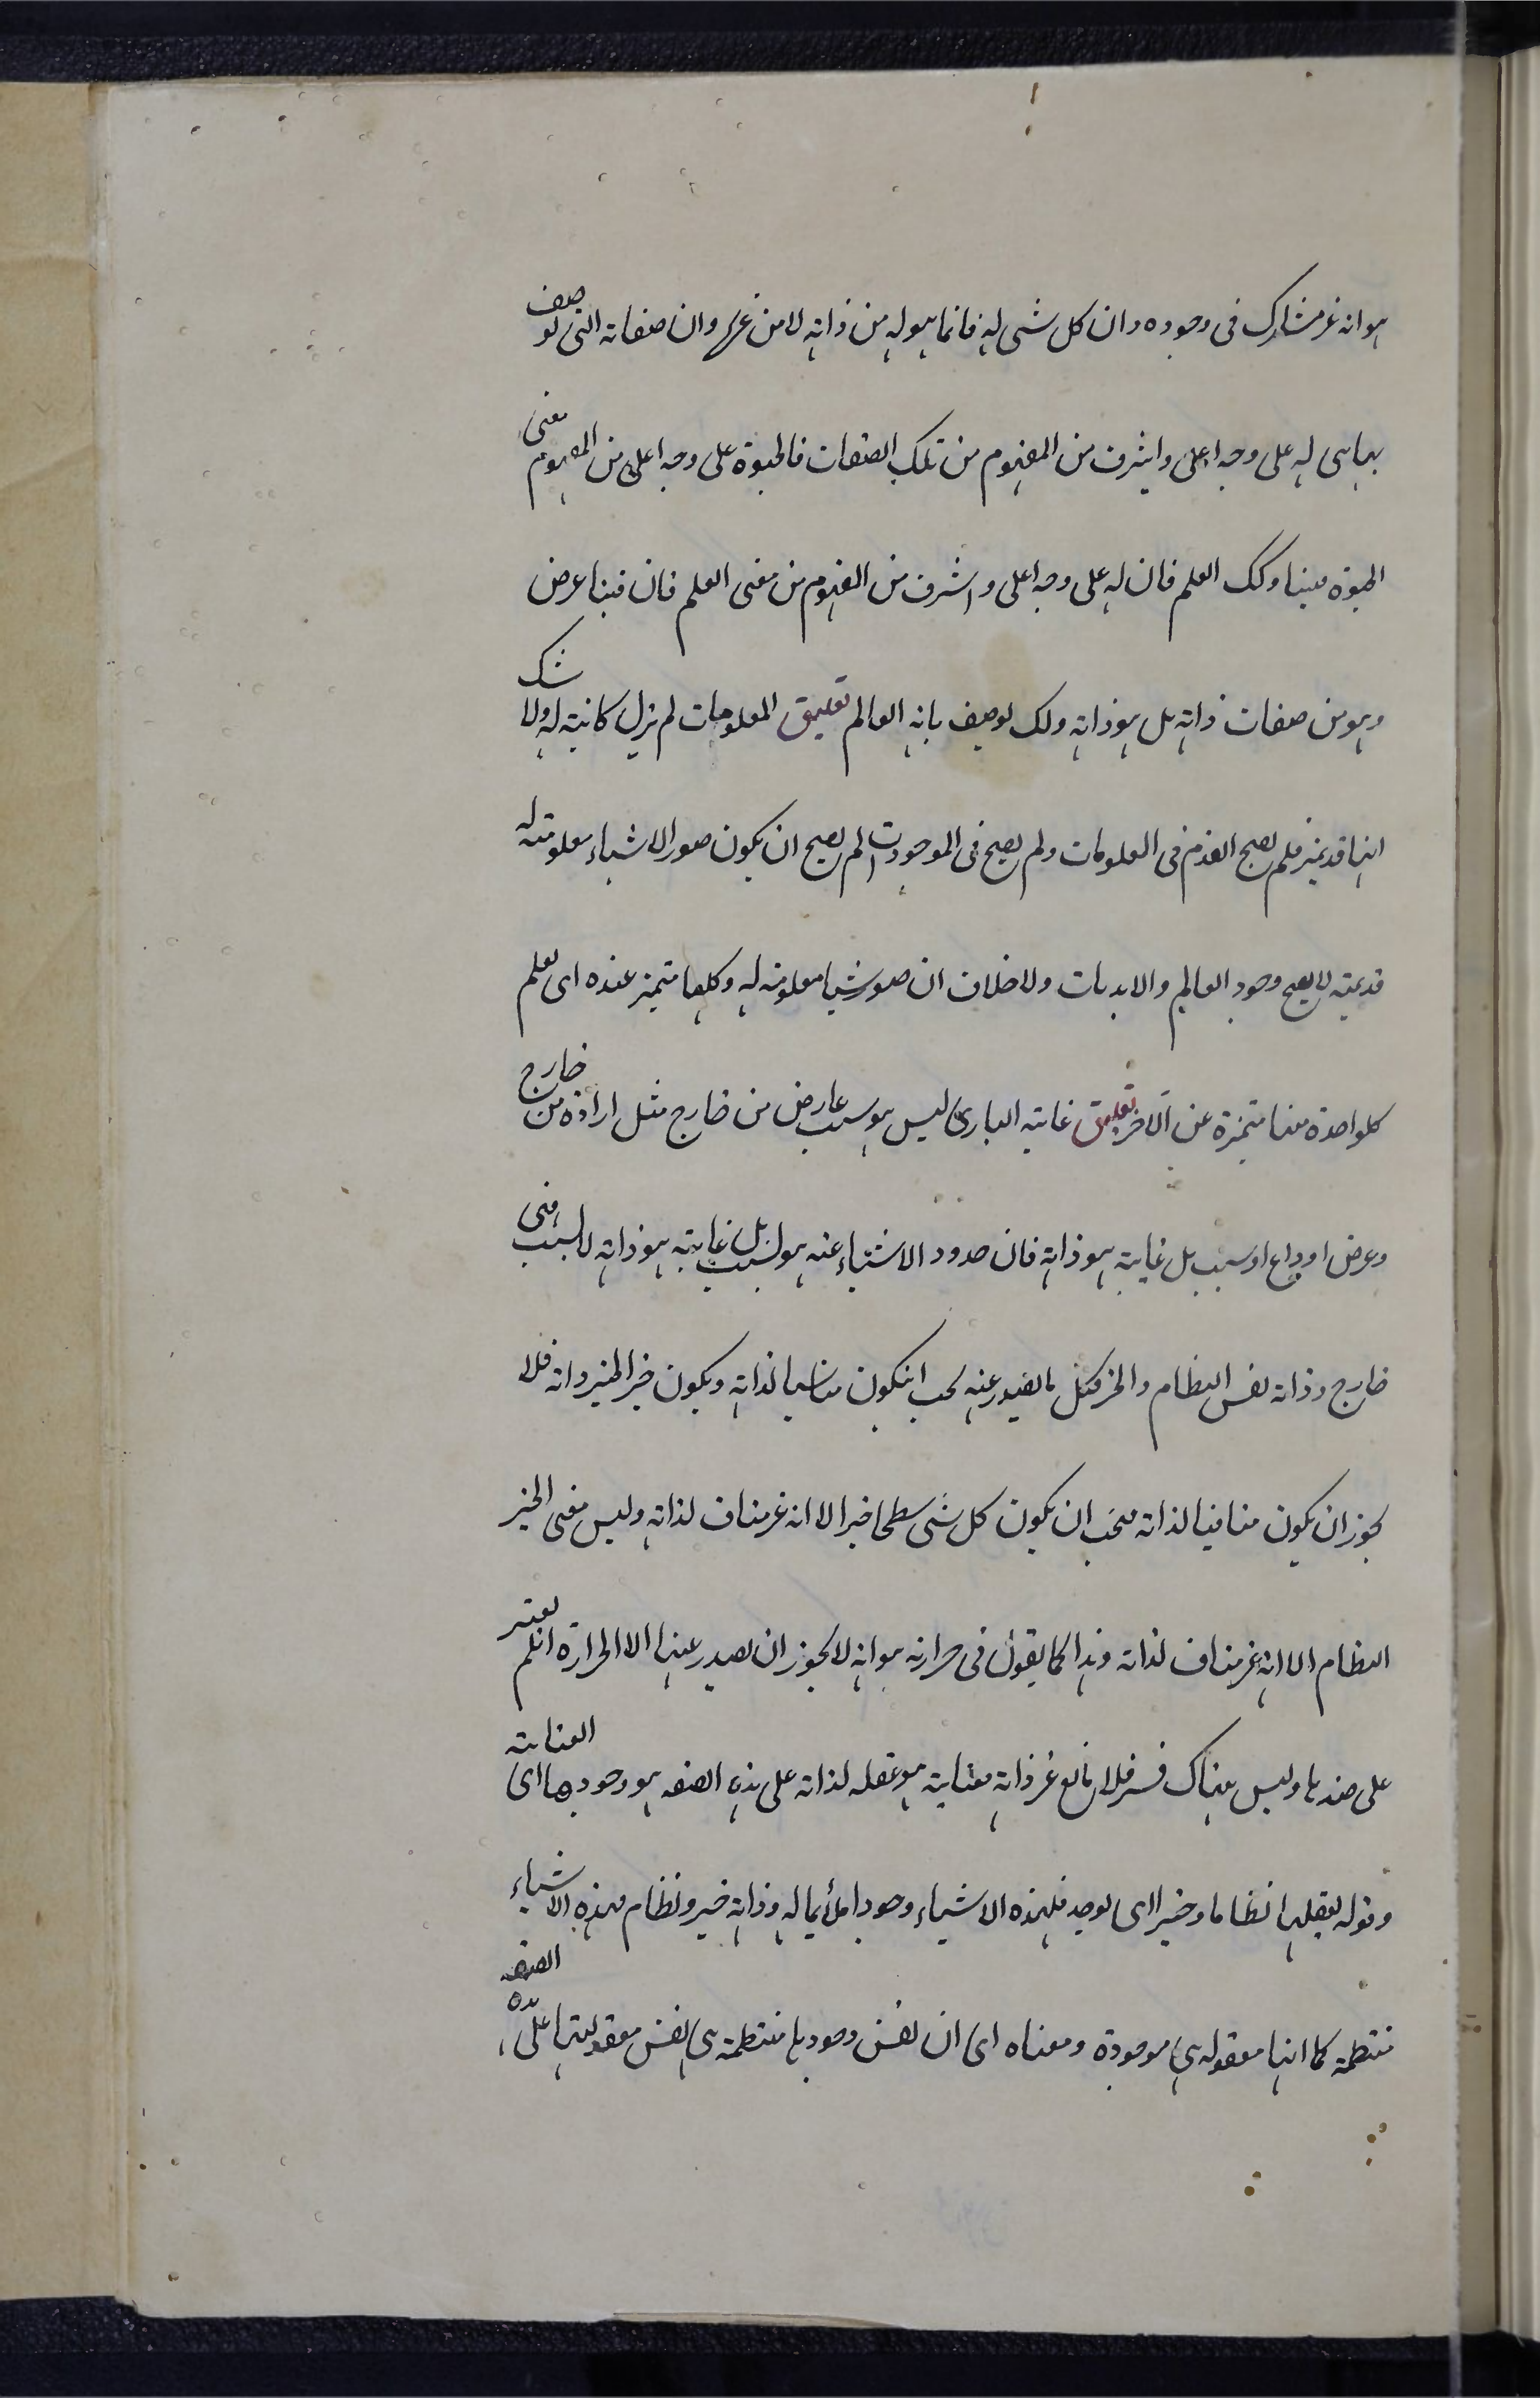 هو انه غير مشارك فى وجوده وان كل شى له فانما هو له من ذاته لا من غيره وان صفاته التى يوصف
بها هى له على وجه اعلى واشرف من المفهوم من تلك الصفات فالحيوة على وجه اعلى من المفهوم معنى
الحيوة فينا وكك العلم فان له على وجه اعلى واشرف من المفهوم من معنى العلم فان فينا عرض
وهو من صفات ذاته بل هو ذاته وكك يوصف بانه العالم تعليق المعلومات لم يزل كانية له ولا شك
انها قديمة فلم يصح القدم فى المعلومات ولم يصح فى الموجودات لم يصح ان يكون صور الاشياء معلومة له
قديمة لا يصح وجود العالم والابديات ولا خلاف ان صور اشيا معلومة له وكلها متميز عنده اى يعلم
كل واحدة منها متميزة عن الآخر تعليق غاية البارى ليس هو سبب عارض من خارج مثل ارادة من خارج
وعرض او داع او سبب بل غايته هو ذاته فان صدور الاشياء عنه هو لسبب بل غايته هو ذاته لا لسبب فى
خارج وذاته نفس النظام والخير فكل ما يصدر عنه يجب ان يكون مناسبا لذاته ويكون خير الخير ذاته فلا
يجوز ان يكون منافيا لذاته فيجب ان يكون كل شى خيرا الا انه غير مناف لذاته وليس معنى الخير
النظام الا انه غير مناف لذاته وهذا كما يقول فى حرارته هو انه لا يجوز ان يصدر عنها الا الحرارة ان لم يعتبر
على ضدها وليس هناك قسر فلا مانع غير ذاته هو تعقله لذاته على هذه الصفه هو وجودها اى العناية
وقوله يعقلها نظاما وخيرا اى يوجد فلهذه الاشياء وجودا ملائما له وذاته خير ونظام فهذه الاشياء
منتظمة كما انها معقوله هى موجودة ومعناه اى ان نفس وجودها منتظمة هى نفس معقوليتها على هذه الصفه